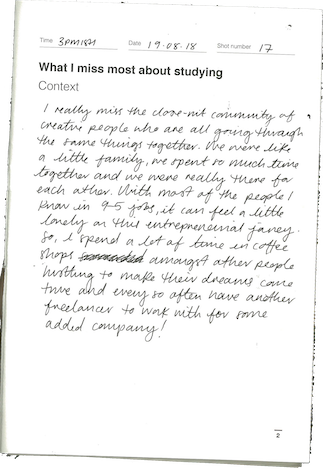 Time 3PM Date 19.08.18 Shot number 17
What I miss most about studying
Context
I really miss the close-nit community of
creative people who are all going through
the same things together. We were like
a little family, we spent so much time
together and we were really there for
each other. With most of the people I
know in 9-5 jobs, it can feel a little
lonely on this entrepreneurial
So, I spend a lot of time in coffee
shops amongst other people
hustling to make their dreams come
true and every so often have another
freelancer to work with for some
added company!
2